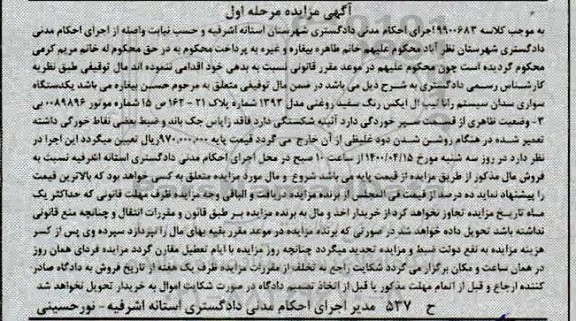 آگهی مزایده مرحله اول
به موجب کلاسه 9900683 اجرای احکام مدنی دادگستری شهرستان استانه اشرفیه و حسب نیابت واصله از اجرای احکام مدنی
دادگستری شهرستان نظر آباد محکوم علیهم خانم طاهره بیغاره و غیره به پرداخت محکوم به در حق محکوم له خانم مریم کرمی
محکوم گردیده است چون محکوم علیهم در موعد مقرر قانونی نسبت به بدهی خود اقدامی ننموده اند مال توقیفی طبق نظریه
کارشناس رسمی دادگستری به شرح ذیل می باشد در ضمن مال توقیفی متعلق به مرحوم حسین بیغاره می باشد یکدستگاه
سواری سدان سیستم رانا تیپ ال ایکس رنگ سفید روغنی مدل 1393 شماره پلاک 21 - 162 ص 15 شماره موتور 0089896 بی
3- وضعیت ظاهری از قسمت سپر خوردگی دارد آئینه شکستگی دارد فاقد زاپاس جک باند و ضبط بعضی نقاط خوردگی داشته
تعمیر شده در هنگام روشن شدن دود غلیظی از آن خارج می گردد قیمت پایه 970,000,000ریال تعیین میگردد این اجرا در
نظر دارد در روز سه شنبه مورخ 1400/04/15 از ساعت 10 صبح در محل اجرای احکام مدنی دادگستری استانه اشرفیه نسبت به
فروش مال مذکور از طریق مزایده از قیمت پایه می باشد شروع و مال مورد مزایده متعلق به کسی خواهد بود که بالاترین قیمت
را پیشنهاد نماید ده درصد از قیمت فی المجلس از برنده مزایده دریافت و الباقی وجه مزایده ظرف مهلت قانونی که حداکثر یک
ماه تاریخ مزایده تجاوز نخواهد کرد از خریدار اخذ و مال به برنده مزایده بر طبق قانون و مقررات انتقال و چنانچه منع قانونی
نداشته باشد تحویل داده خواهد شد در صورتی که برنده مزایده در موعد مقرر بقیه بهای مال را نپردازد سپرده وی پس از کسر
هزینه مزایده به نفع دولت ضبط و مزایده تجدید میگردد چنانچه روز مزایده با ایام تعطیل مقارن گردد مزایده فردای همان روز
در همان ساعت و مکان برگزار می گردد شکایت راجع به تخلف از مقررات مزایده ظرف یک هفته از تاریخ فروش به دادگاه صادر
کننده ارجاع و قبل از اتمام مهلت مذکور یا قبل از اتخاذ تصمیم دادگاه در صورت شکایت اموال به خریدار تحویل نخواهد شد
ح 537 مدیر اجرای احکام مدنی دادگستری استانه اشرفیه - نورحسینی